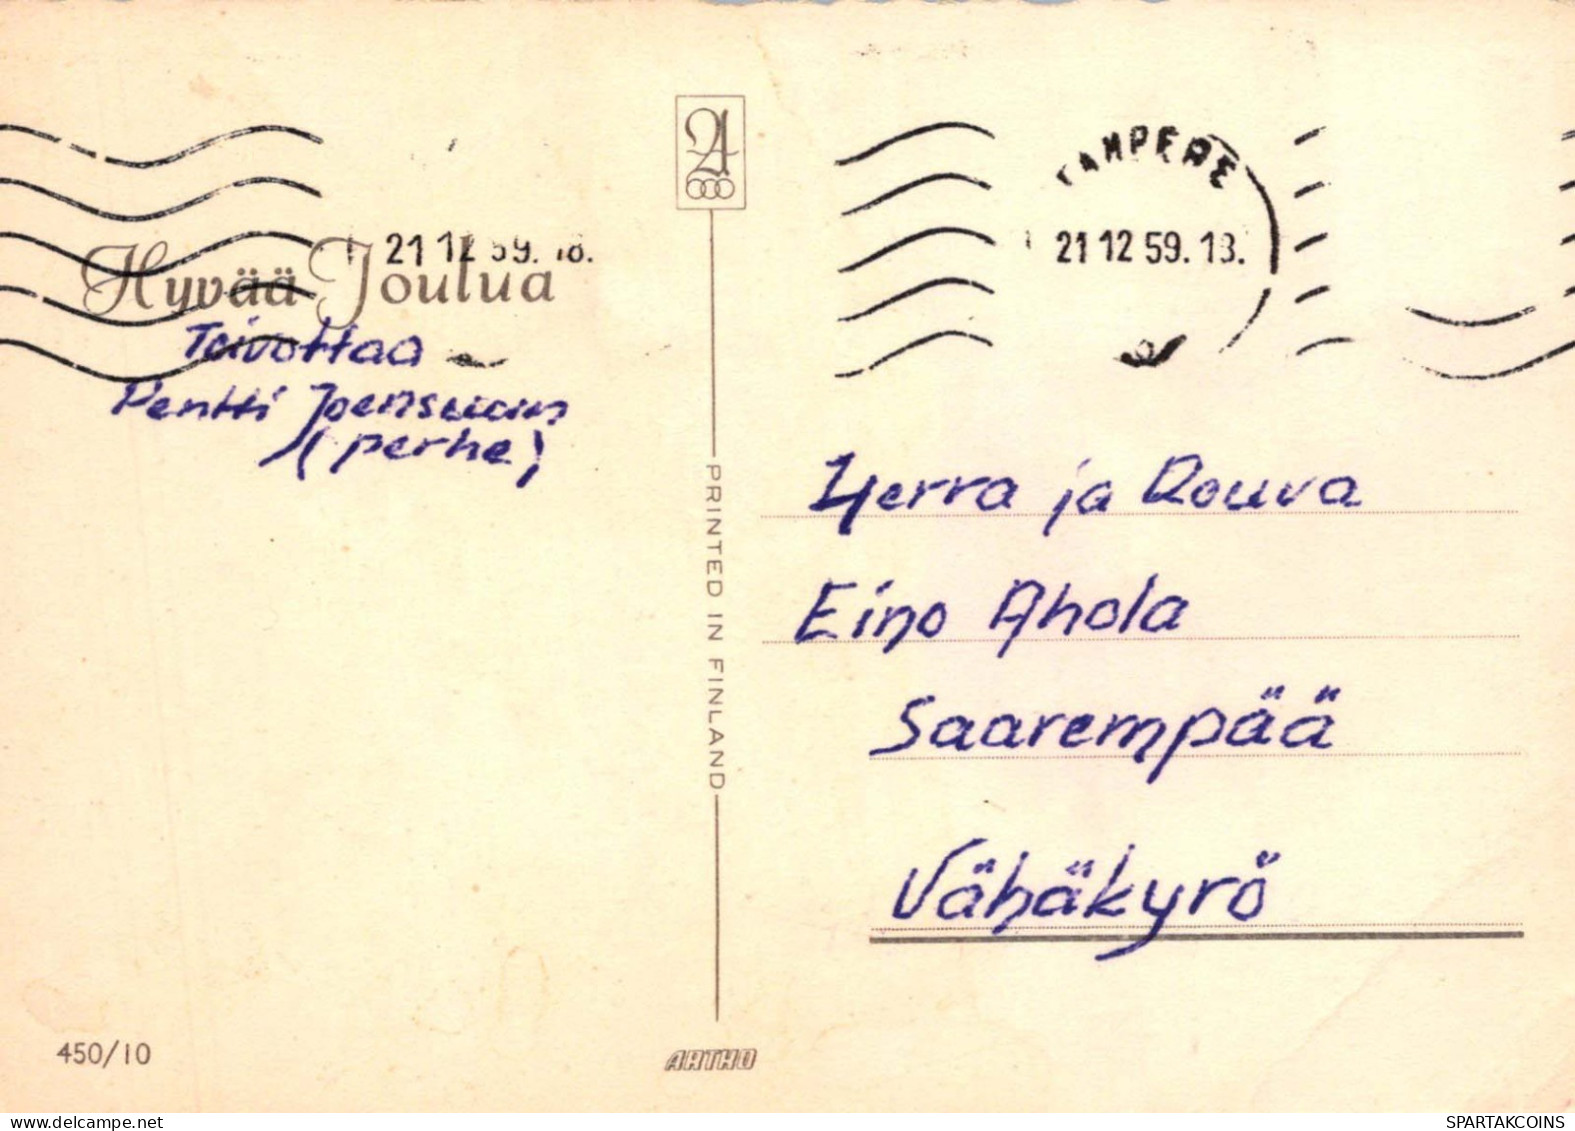 TAMPERE
21 12 59. 18.
21 12 59. 18.
Hyvää Joulua
Toivottaa
Pentti Joensuun
(perhe)
PRINTED IN FINLAND
Herra ja Rouva
Eino Ahola
Saarempää
Vähäkyrö
450/10
ARTHO
www.delcampe.net
SPARTAKCOINS